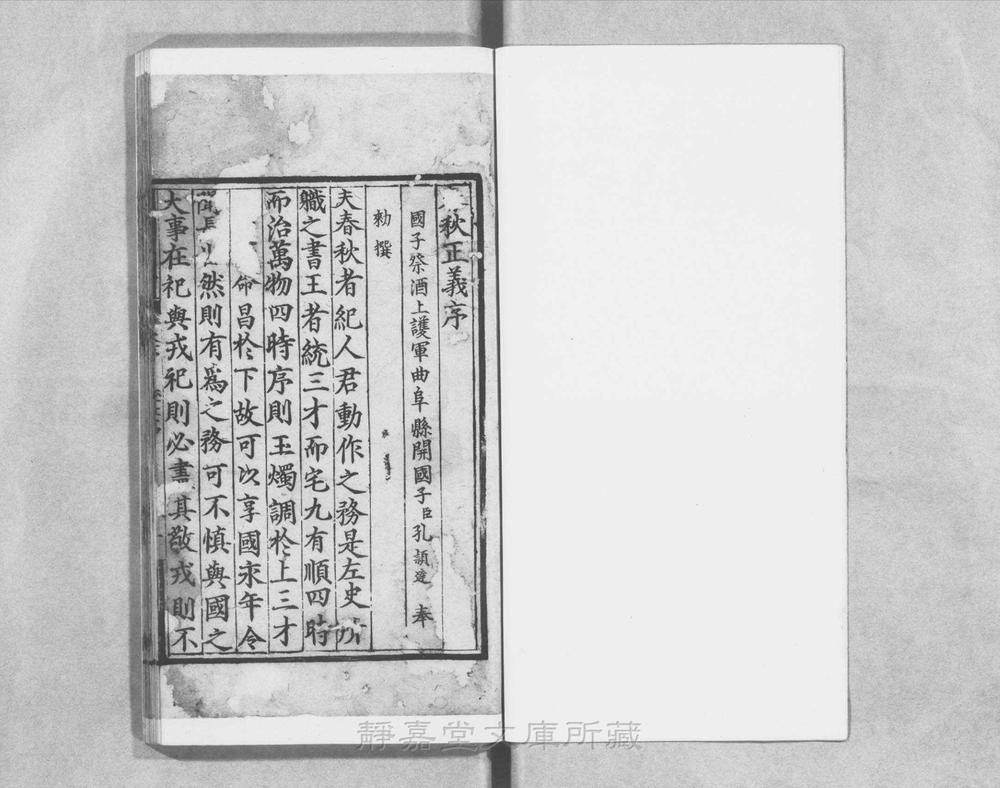 秋正義序
國子祭酒上護軍曲阜縣開國子臣孔穎達 奉
勑撰
夫春秋者紀人君動作之務是左史所
職之書王者統三才而宅九有順四時
而治萬物四時序則玉燭調於上三才
命昌於下故可以享國永年令
聞長然則有爲之務可不慎與國之
大事在祀與戎祀則必書其敬戎則不
靜嘉堂文庫所藏